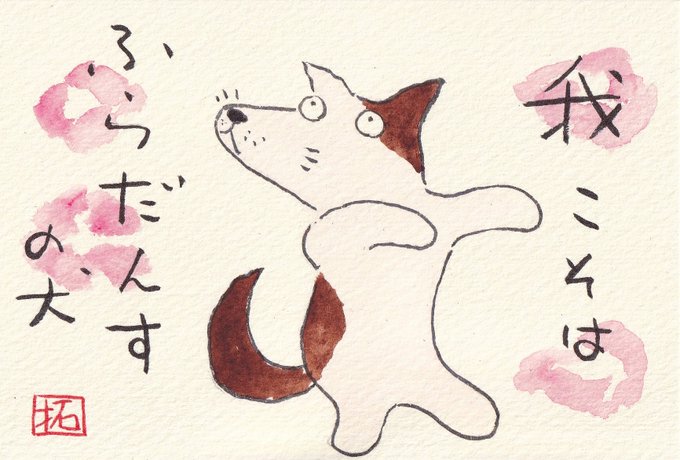 我こそは
ふらだんす
の犬
拓